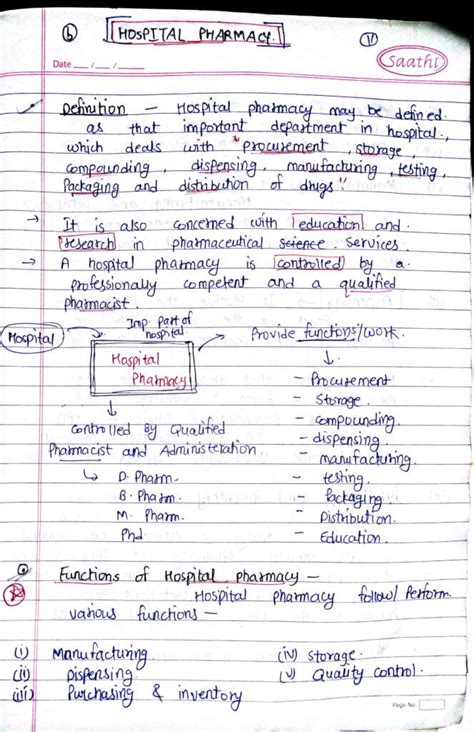 (b) HOSPITAL PHARMACY.
Date __/__/__
Saathi
Definition – Hospital pharmacy may be defined.
as that important department in hospital.,
which deals with "procurement, storage,
compounding, dispensing, manufacturing, testing,
Packaging and distribution of drugs."
→ It is also concerned with education and.
research in pharmaceutical science. services.
→ A hospital pharmacy is controlled by a.
professionally competent and a qualified
pharmacist.
Hospital
Imp. part of
hospital.
Hospital
Pharmacy
Provide functions/work.
↓
- Procurement
- Storage.
- compounding.
- dispensing
- manufacturing.
- testing.
- Packaging
- Distribution.
- Education.
↓
Controlled By Qualified
Pharmacist and Administeration.
↳ D. Pharm.
B. Pharm.
M. Pharm.
Phd
Functions of Hospital pharmacy –
Hospital pharmacy follow/ Perform.
various functions –
(i) Manufacturing.
(ii) Dispensing.
(iii) Purchasing & inventory
(iv) storage.
(v) Quality control.
Page No.